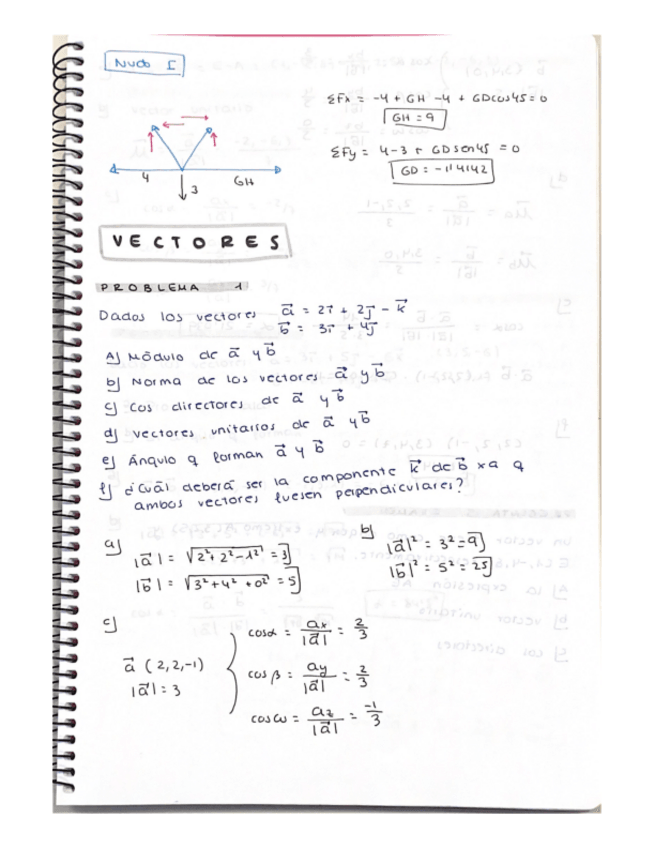 Nudo I
ΣFx = -4 + GH -4 + GDcos45 = 0
GH = 9
ΣFy = 4-3 + GDsen45 = 0
GD = -1'4142
4
3
GH
VECTORES
PROBLEMA 1
Dados los vectores a⃗ = 2i⃗ + 2j⃗ - k⃗
b⃗ = 3i⃗ + 4j⃗
A) Módulo de a⃗ y b⃗
b) Norma de los vectores a⃗ y b⃗
c) Cos directores de a⃗ y b⃗
d) Vectores unitarios de a⃗ y b⃗
e) Ángulo q forman a⃗ y b⃗
f) ¿Cuál deberá ser la componente k⃗ de b⃗ xa q
ambos vectores fuesen perpendiculares?
a)
|a⃗| = √2²+2²-1² = 3
|b⃗| = √3²+4²+0² = 5
b)
|a⃗|² = 3² = 9
|b⃗|² = 5² = 25
c)
a⃗ (2,2,-1)
|a⃗| = 3
cosα = ax/|a⃗| = 2/3
cos β = ay/|a⃗| = 2/3
cosω = az/|a⃗| = -1/3